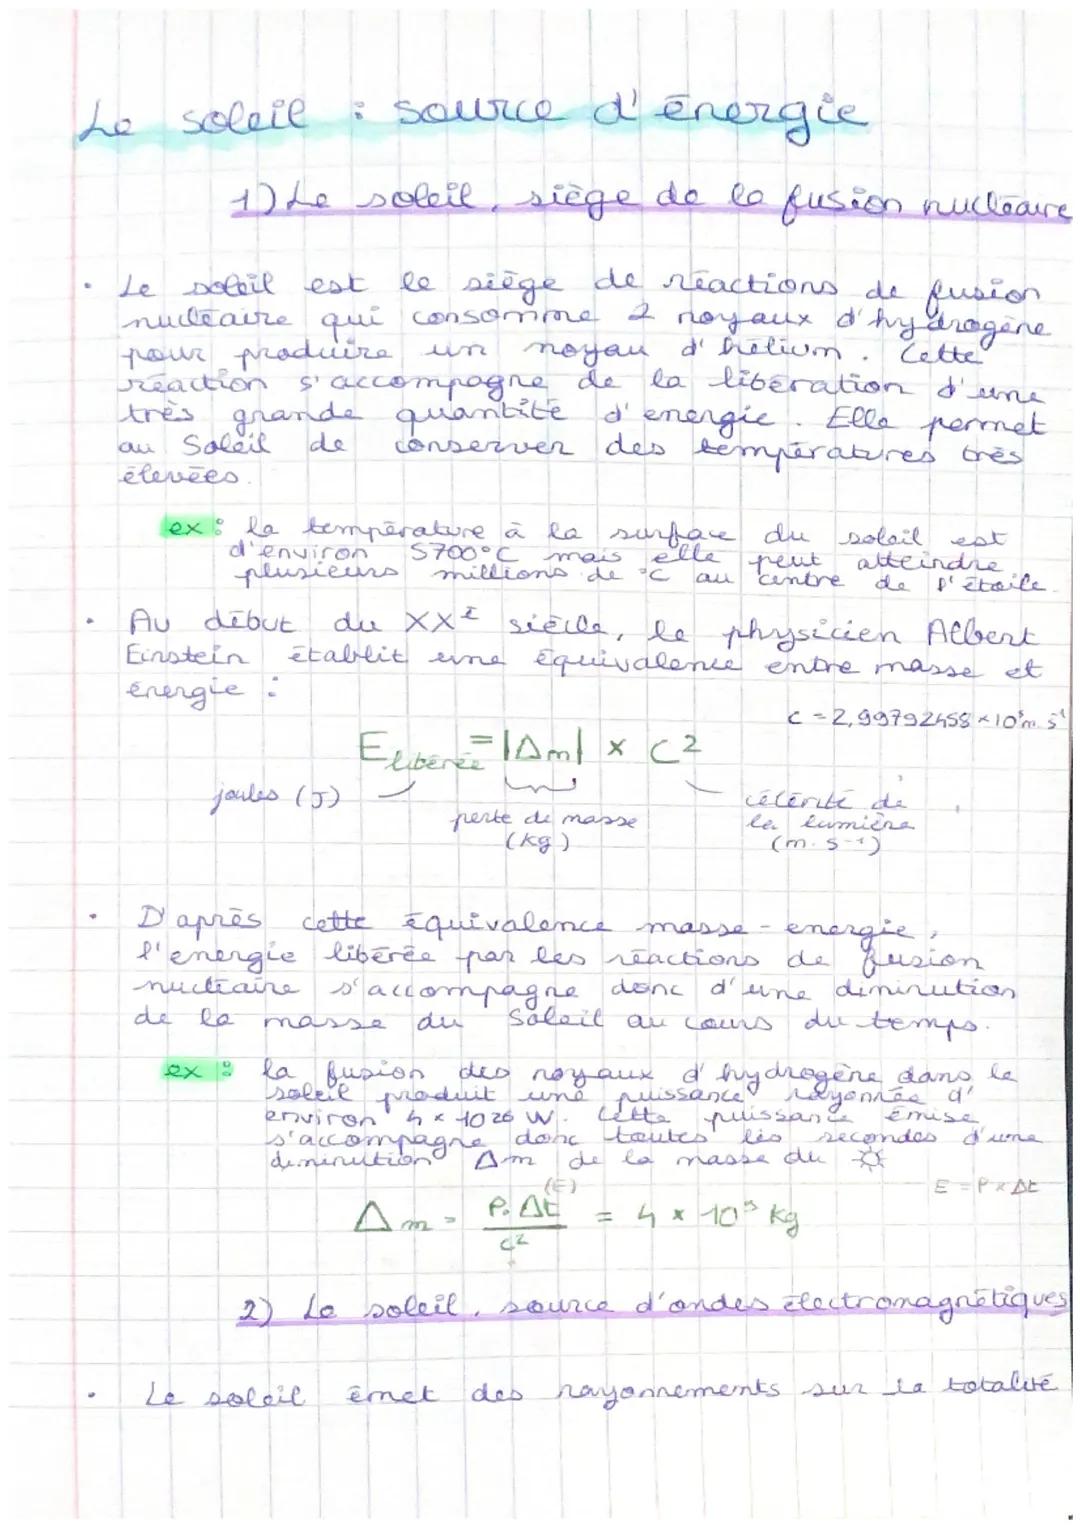 Le soleil : source d'énergie
1) Le soleil, siège de la fusion nucléaire
• Le soleil est le siège de réactions de fusion
nucléaire qui consomme 2 noyaux d'hydrogène
pour produire un noyau d'hélium. Cette
réaction s'accompagne de la libération d'une
très grande quantité d'energie. Elle permet
au Soleil de conserver des températures très
élevées.
ex : la température à la surface du soleil est
d'environ 5700°C mais elle peut atteindre
plusieurs millions de °C au centre de l'étoile.
• Au début du XXᵉ siècle, le physicien Albert
Einstein établit une équivalence entre masse et
énergie :
c = 2,99792458 × 10⁸ m.s⁻¹
E libérée = |Δm| × c²
joules (J)
perte de masse
(kg)
célérité de
la lumière
(m.s⁻¹)
• D'après cette équivalence masse-energie,
l'energie libérée par les réactions de fusion
nucléaire s'accompagne donc d'une diminution
de la masse du Soleil au cours du temps.
ex : la fusion des noyaux d'hydrogène dans le
soleil produit une puissance rayonnée d'
environ 4 × 10 26 W. Cette puissance émise
s'accompagne donc toutes les secondes d'une
diminution Δm de la masse du ☼
E = P × Δt
(E)
Δm = P. Δt / c² = 4 × 10⁹ kg
2) Le soleil, source d'ondes électromagnétiques
• Le soleil émet des rayonnements sur la totalité